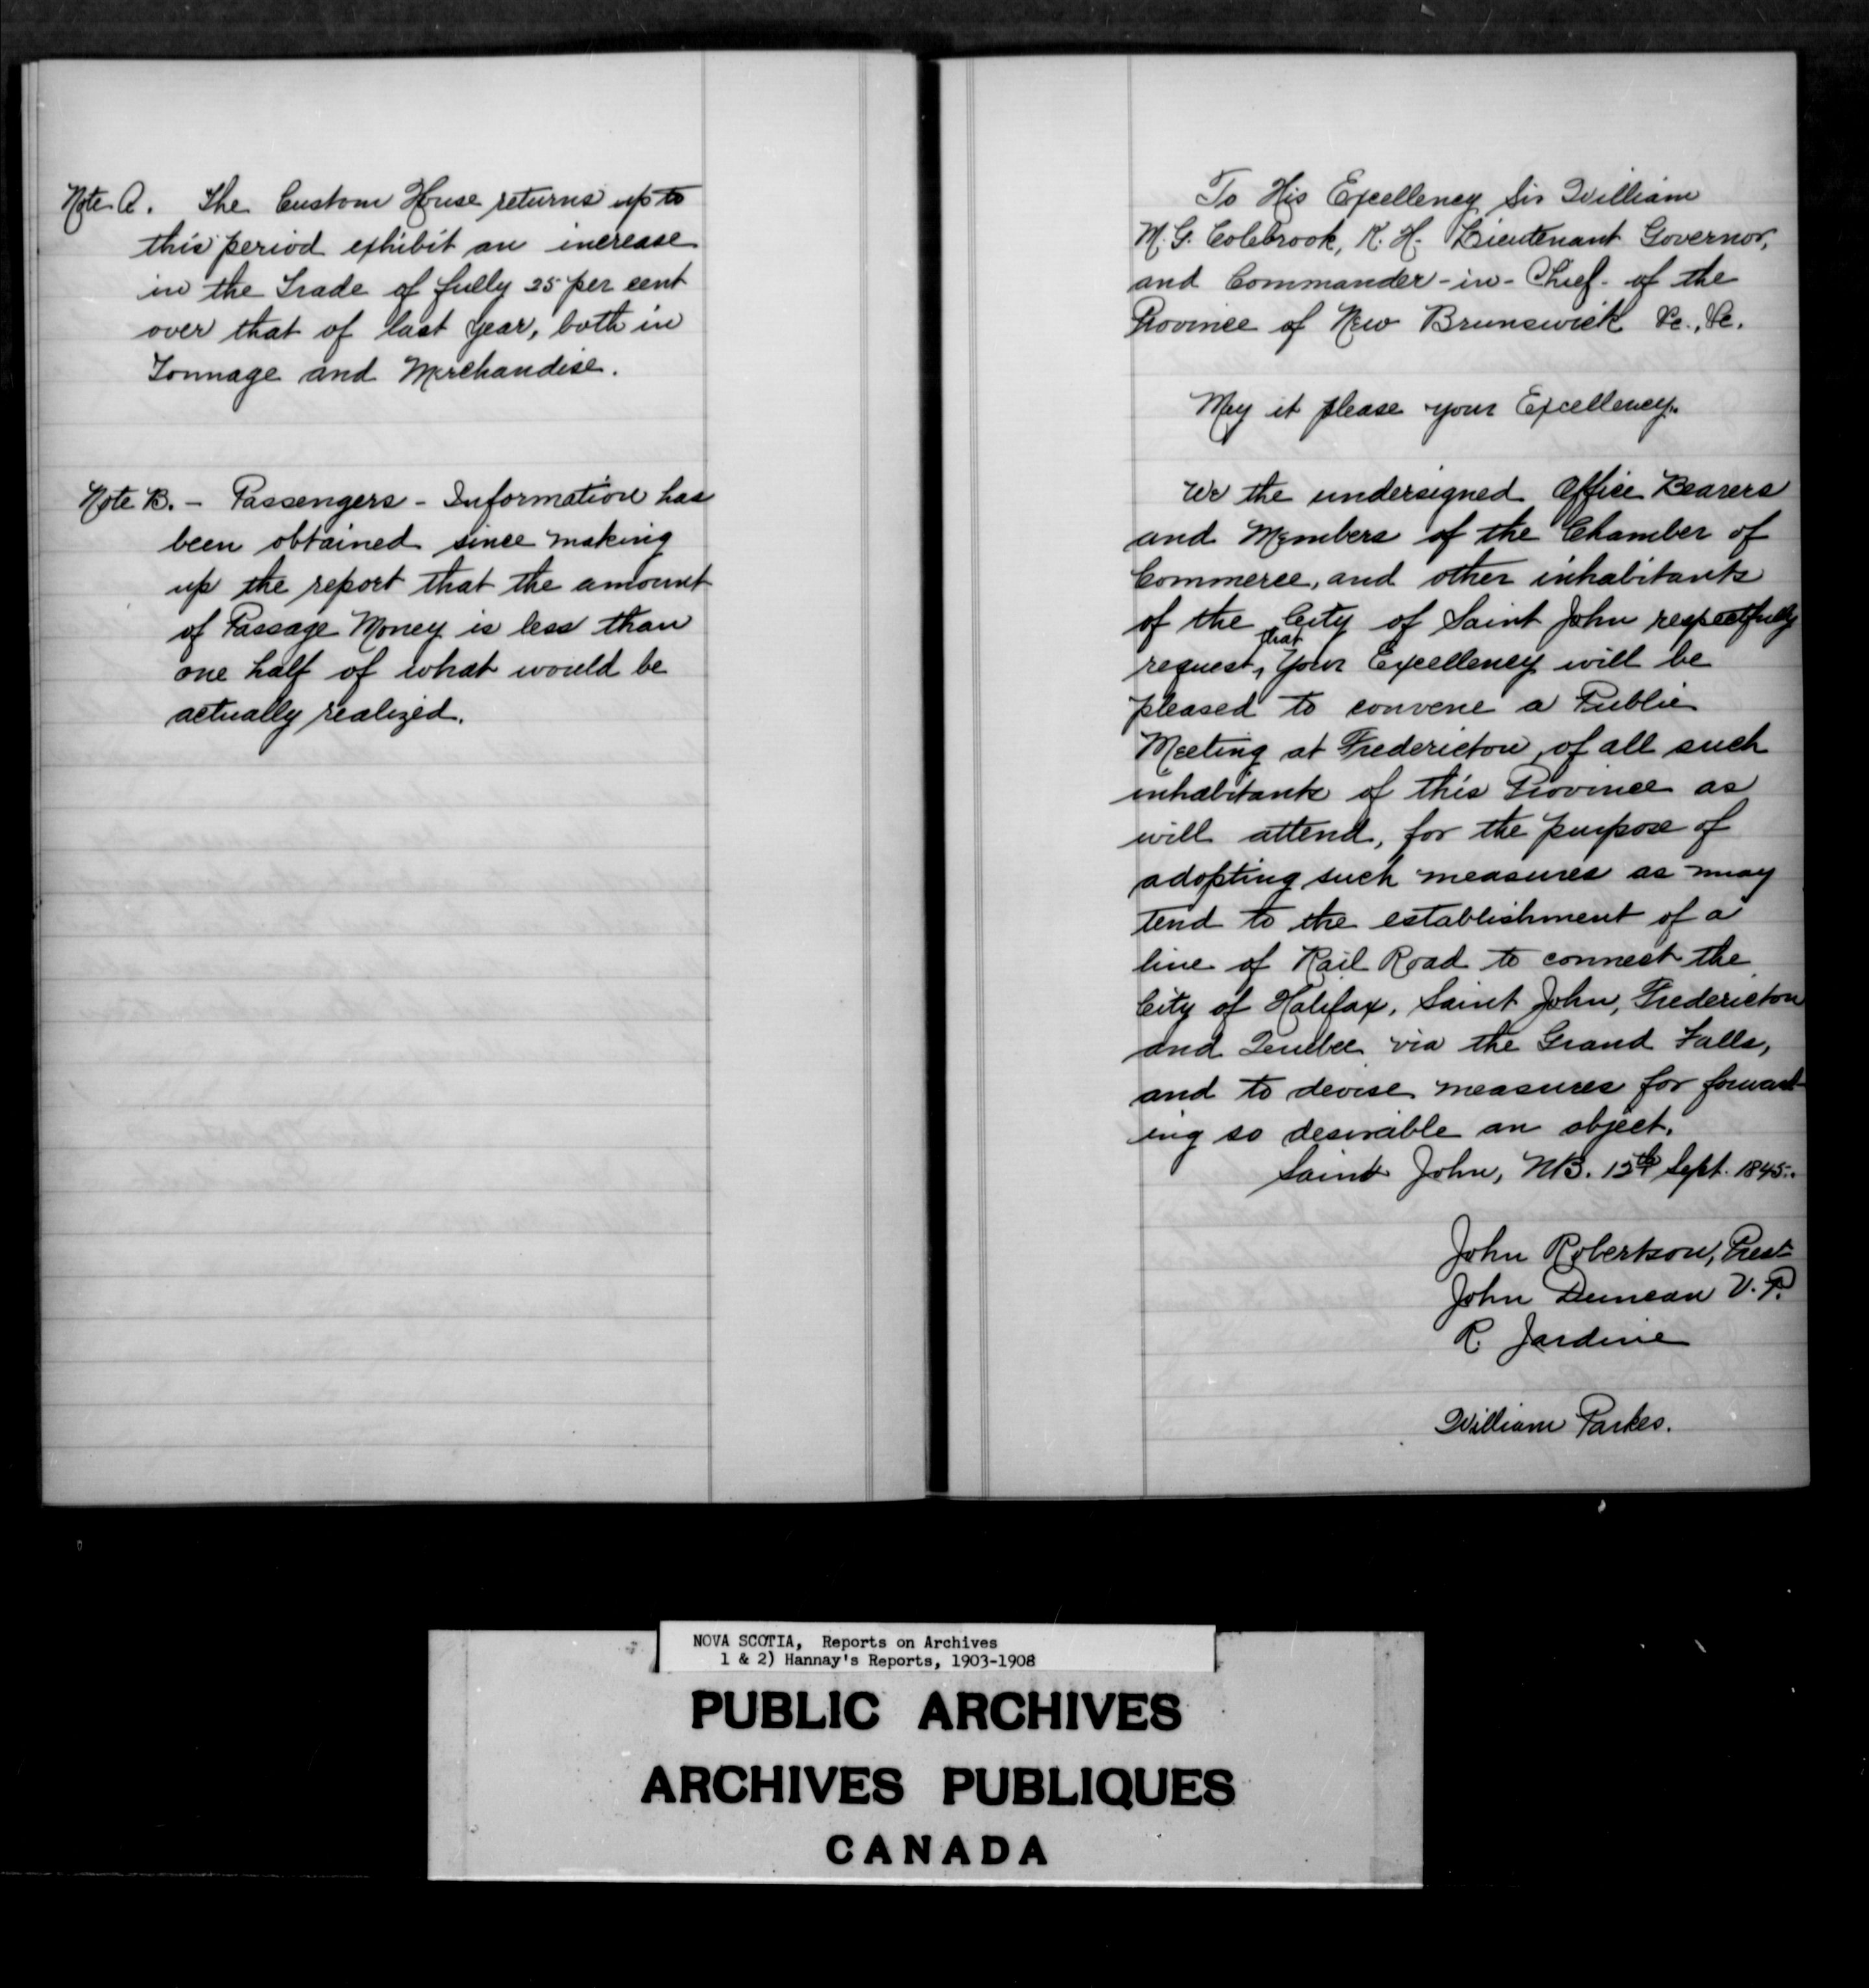 Note A. The Custom House returns up to
this period exhibit an increase
in the Trade of fully 25 per cent
over that of last year, both in
Tonnage and Merchandise.
Note B. – Passengers – Information has
been obtained since making
up the report that the amount
of Passage Money is less than
one half of what would be
actually realized.
To His Excellency Sir William
M. G. Colebrook, K. H. Lieutenant Governor,
and Commander-in-Chief of the
Province of New Brunswick &c., &c.
May it please your Excellency.
We the undersigned Office Bearers
and Members of the Chamber of
Commerce, and other inhabitants
of the City of Saint John respectfully
request, that Your Excellency will be
pleased to convene a Public
Meeting at Fredericton, of all such
inhabitants of this Province as
will attend, for the purpose of
adopting such measures as may
tend to the establishment of a
line of Rail Road to connect the
City of Halifax, Saint John, Fredericton
and Quebec via the Grand Falls,
and to devise measures for forward-
ing so desirable an object.
Saint John, NB. 15th Sept. 1845.
John Robertson, Prest
John Duncan V. P.
R. Jardine
William Parkes.
NOVA SCOTIA, Reports on Archives
1 & 2) Hannay's Reports, 1903-1908
PUBLIC ARCHIVES
ARCHIVES PUBLIQUES
CANADA